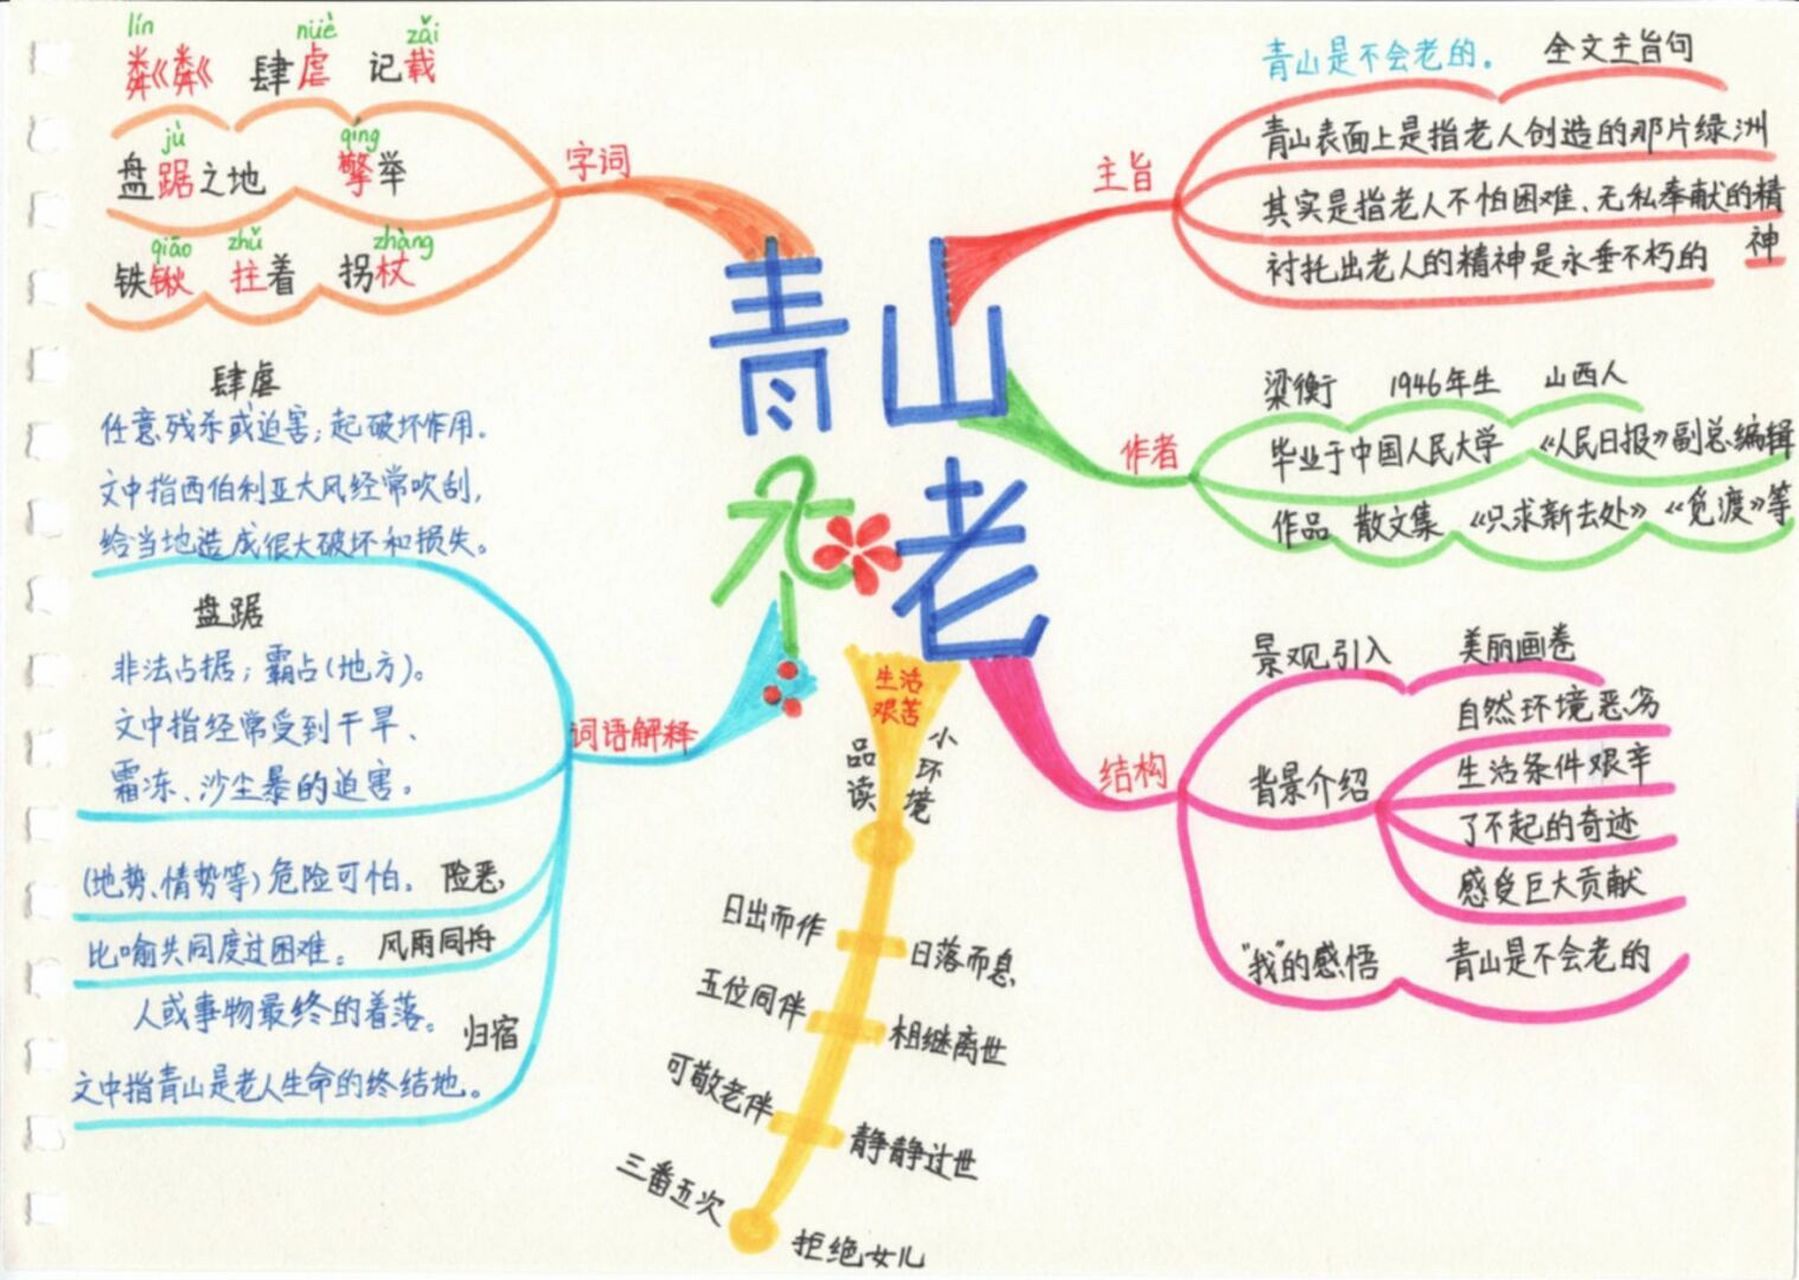 lín nüè zǎi
粼粼 肆虐 记载
jù qíng
盘踞之地 擎举
qiāo zhǔ zhàng
铁锹 拄着 拐杖
字词
肆虐
任意残杀或迫害；起破坏作用.
文中指西伯利亚大风经常吹刮，
给当地造成很大破坏和损失。
盘踞
非法占据；霸占(地方)。
文中指经常受到干旱、
霜冻、沙尘暴的迫害。
词语解释
(地势、情势等)危险可怕. 险恶,
比喻共同度过困难。 风雨同舟
人或事物最终的着落。 归宿
文中指青山是老人生命的终结地。
青山
不老
主旨
青山是不会老的. 全文主旨句
青山表面上是指老人创造的那片绿洲
其实是指老人不怕困难、无私奉献的精
神
衬托出老人的精神是永垂不朽的
作者
梁衡 1946年生 山西人
毕业于中国人民大学 《人民日报》副总编辑
作品 散文集 《只求新去处》 《觅渡》等
结构
景观引入 美丽画卷
背景介绍
自然环境恶劣
生活条件艰辛
了不起的奇迹
感受巨大贡献
"我"的感悟 青山是不会老的
生活
艰苦
品读
小环境
日出而作 日落而息
五位同伴 相继离世
可敬老伴 静静过世
三番五次 拒绝女儿